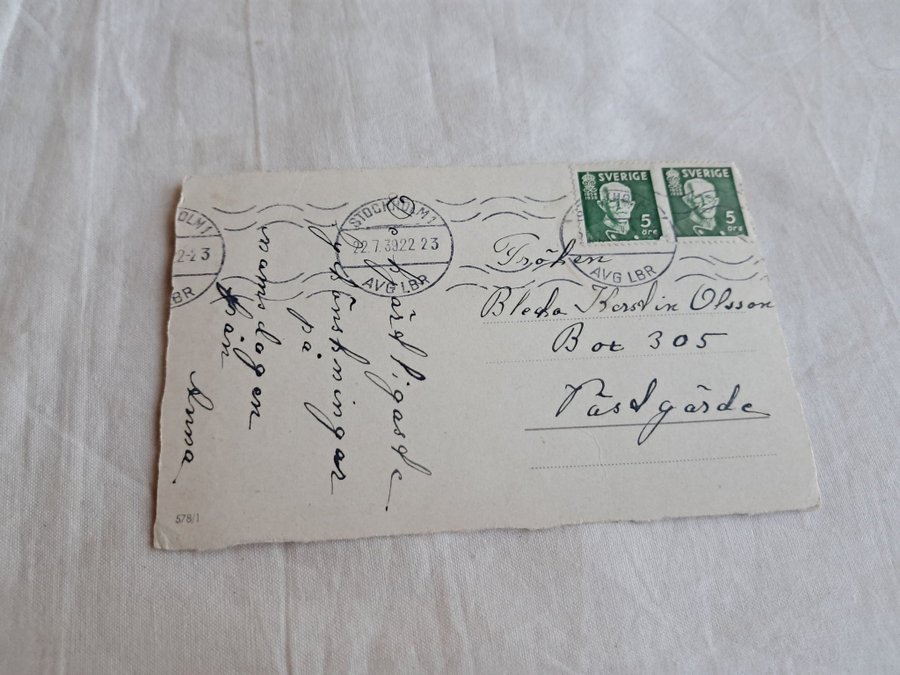 SVERIGE
5
öre
SVERIGE
5
öre
STOCKHOLM 1
22.7.39.22 23
AVG LBR
OLM 1
2-2 3
BR
AVG LBR
Fröken
Kerstin Olsson
Box 305
hjärtligaste
lyckönskningar
på
namsdagen
från
Anna
578/1